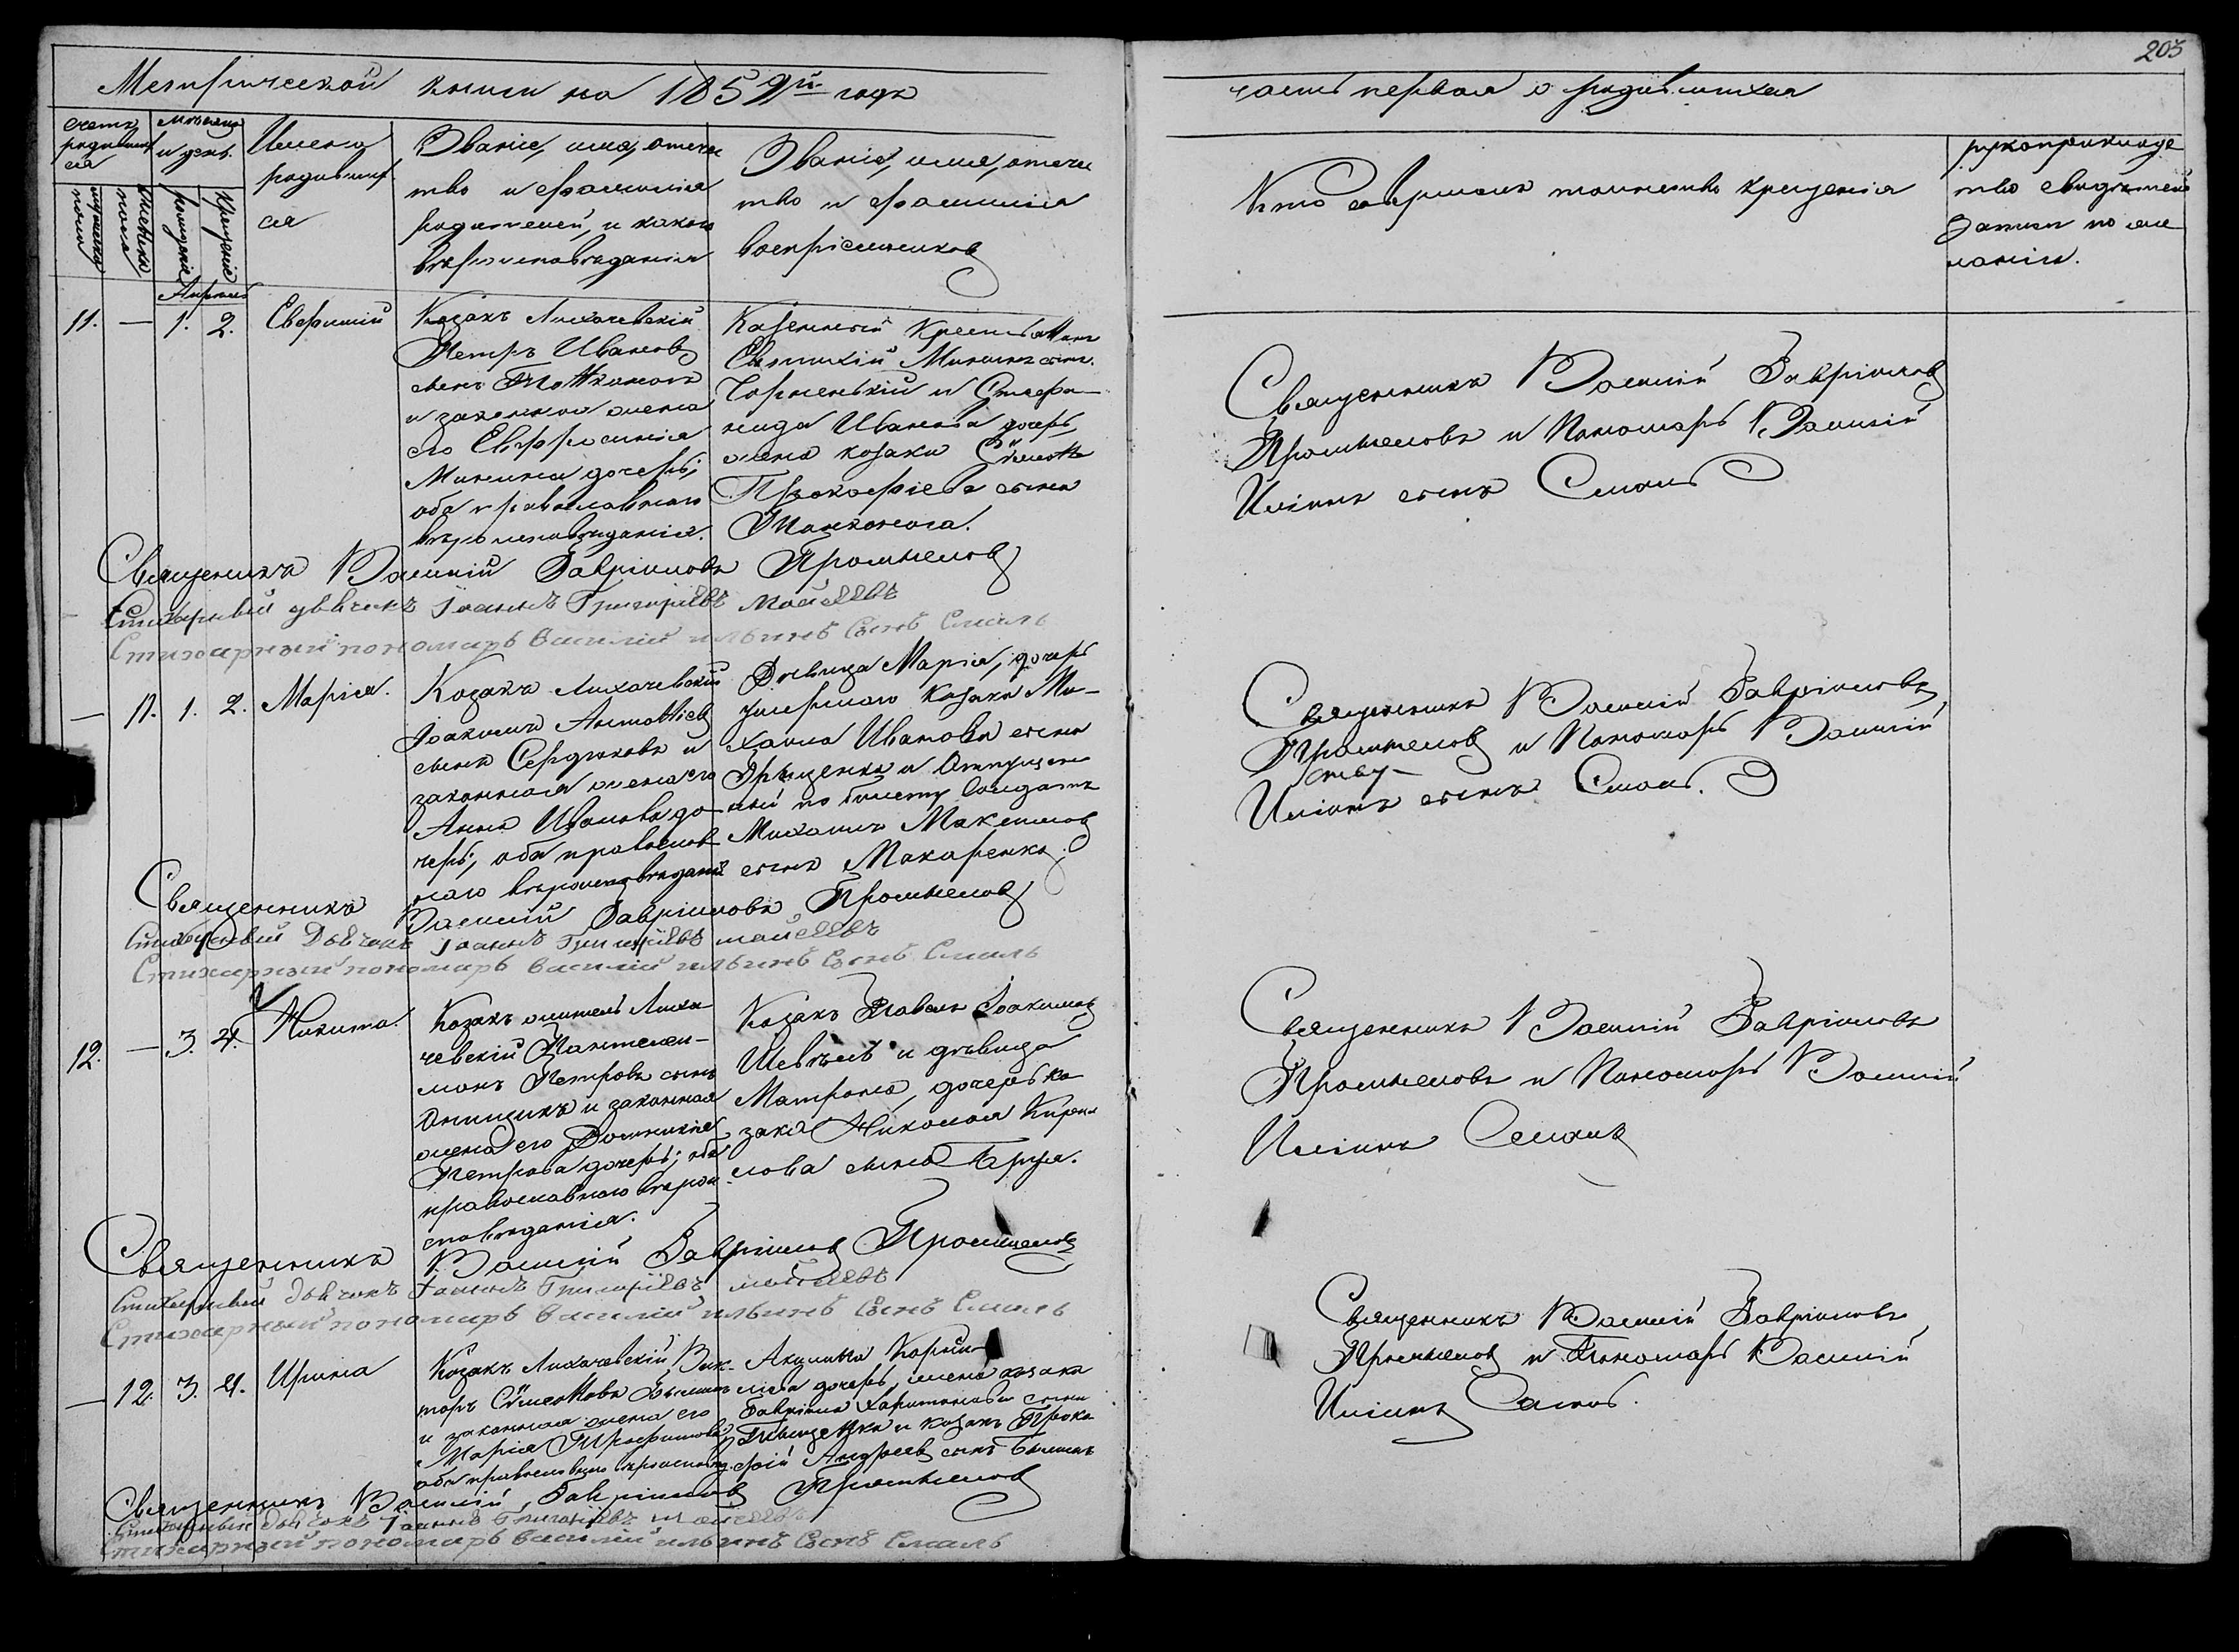 203
Метрической книги на 1859й годъ
часть первая о родившихся
Счетъ родившихся
Мѣсяцъ и день.
мужеска пола
женска пола
рожденіе
крещеніе
Имена
родивших
ся
Званіе, имя, отечес
тво и фамилія
родителей, и какого
вѣроисповѣданія
Званіе, имя, отечес
тво и фамилія
воспріемников
Кто совершалъ таинство крещенія
рукоприкладс
тво свидѣтелей
записи по же
ланію.
Апрѣль
11. — 1. 2.
Козакъ Лихачевскій
Петръ Иванов
сынъ
и законная жена
его Евфросинія
Минина дочерь;
оба православнаго
вѣроисповѣданія.
Казенный Крестьянинъ
Минин сынъ
и Стефа-
нида Иванова дочерь,
жена козака
Прокофіева сына
Священникъ Василій Гавріиловъ
и Пономарь Василій
Иліинъ сынъ Смаль
Священникъ Василій Гавріиловъ
Стихарный дьячекъ Іоаннъ Григоріевъ Мойсеевъ
Стихарный пономарь Василій ильинъ Сынъ Смаль
— 11. 1. 2. Марія.
Козакъ Лихачевскій
Іоакимъ
сынъ Сердюковъ и
законная жена его
Анна Иванова до-
черь; оба православ
наго вѣроисповѣданія
Дѣвица Марія, дочерь
умершаго Козака Ми-
хаила Иванова сына
и Отпущен
ный по билету Солдатъ
Михаилъ Максимов
сынъ Макаренко.
Священникъ Василій Гавріиловъ
и Пономарь Василій
Иліинъ сынъ Смаль.
Священникъ Василій Гавріиловъ
Стихарный Дьячекъ Іоаннъ Григоріевъ мойсеевъ
Стихарный пономарь Василій ильинъ Сынъ Смаль
12. — 3. 4. Никита.
Козакъ житель Лиха-
чевскій Пантелеи-
монъ Петровъ сынъ
Онищикъ и законная
жена его Домникія
Петрова дочерь; оба
православнаго вѣрои
сповѣданія.
Козакъ Павелъ Іоакимов
Шевчель и дѣвица
Матрона, дочерь ко
зака Николая Кири
лова сына
Священникъ Василій Гавріиловъ
и Пономарь Василій
Иліинъ Смаль
Священникъ Василій Гавріилов
Стихарный дьячекъ Іоаннъ Григоріевъ мойсеевъ
Стихарный пономарь Василій ильинъ Сынъ Смаль
— 12. 3. 4. Ирина
Козакъ Лихачевскій Вик-
торъ
и законная жена его
Марія Трофимова
оба православнаго вѣроисповѣд.
Акилина
дочерь, жена козака
Гавріила Харитонова сына
и Козакъ Проко
фій Андреев сынъ
Священникъ Василій Гавріиловъ
и Пономарь Василій
Иліинъ Смаль.
Священникъ Василій Гавріилов
Стихарный дьячекъ Іоаннъ Григоріевъ Мойсеевъ
Стихарный пономарь Василій ильинъ Сынъ Смаль